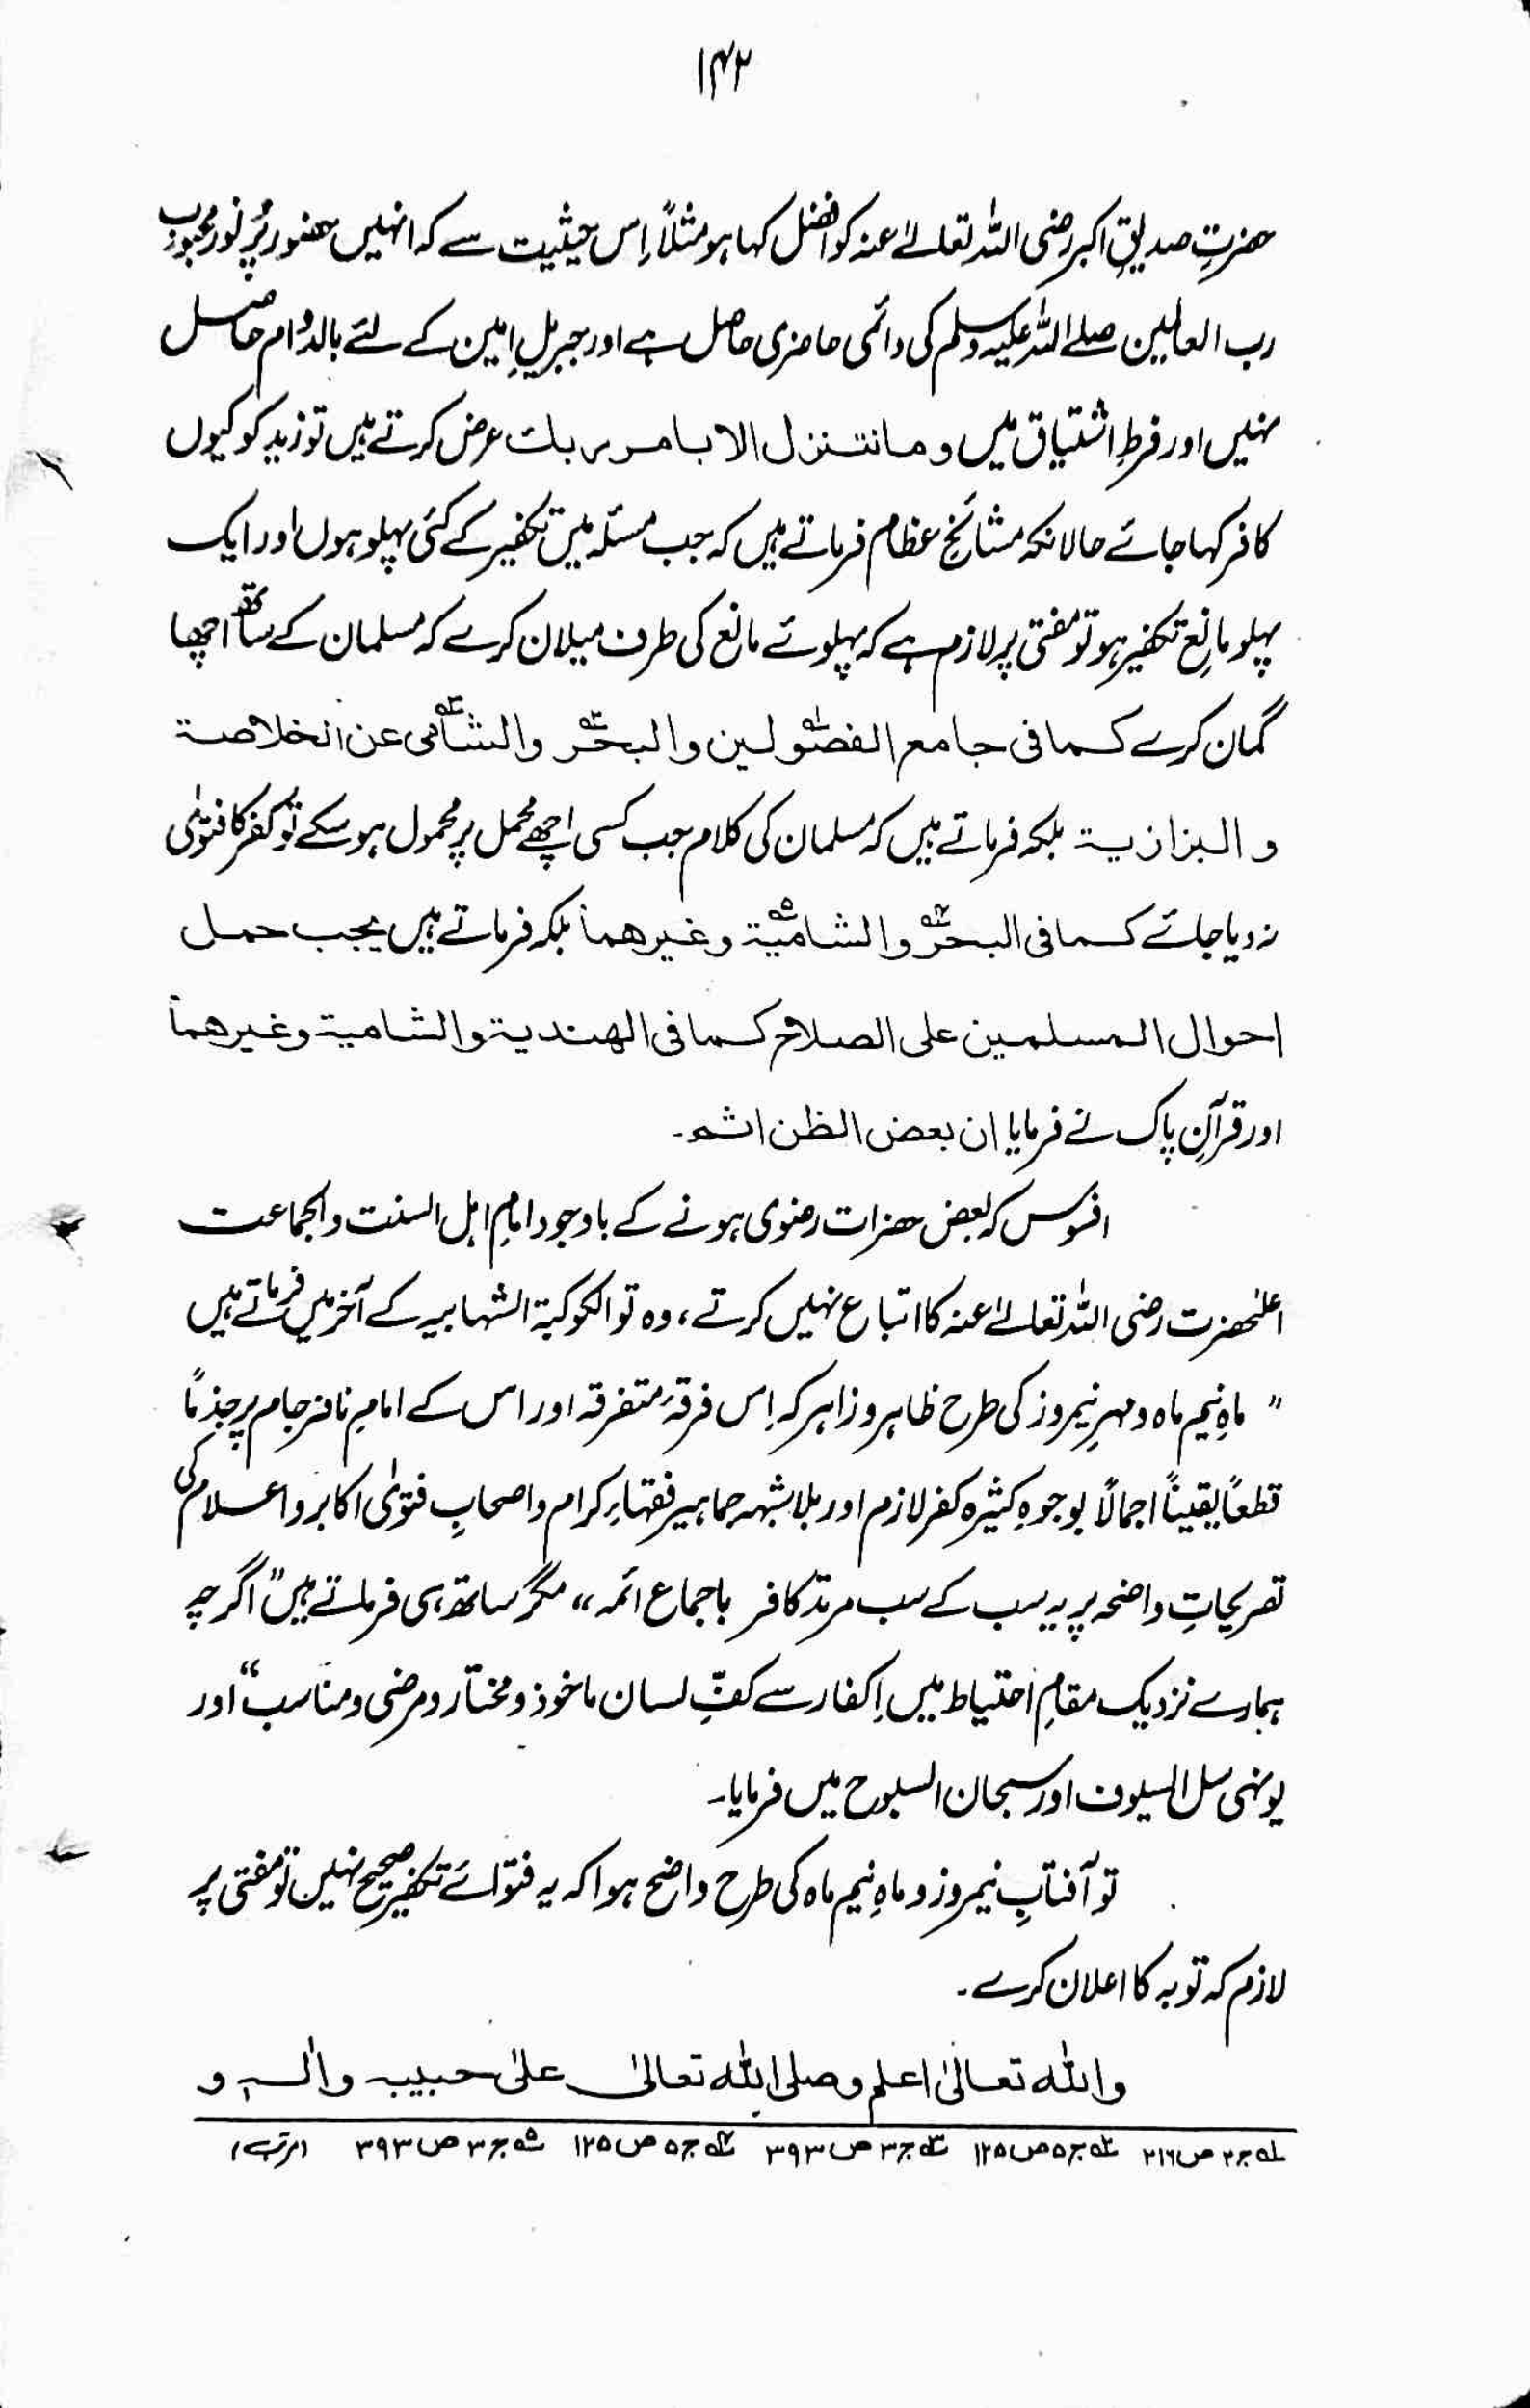 ۱۴۲
حضرتِ صدیقِ اکبر رضی اللہ تعالےٰ عنہ کو افضل کہا ہو مثلاً اِس حیثیت سے کہ انہیں حضور پُر نور محبوبِ
رب العالمین صلے اللہ علیہ وسلم کی دائمی حاضری حاصل ہے اور جبریلِ امین کے لئے بالدوام حاصل
نہیں اور فرطِ اشتیاق میں و ما نتنزل الا بامر ربك عرض کرتے ہیں تو زید کو کیوں
کافر کہا جائے حالانکہ مشائخِ عظام فرماتے ہیں کہ جب مسئلہ میں تکفیر کے کئی پہلو ہوں اور ایک
پہلو مانِع تکفیر ہو تو مفتی پر لازم ہے کہ پہلوئے مانع کی طرف میلان کرے کہ مسلمان کے ساتھ اچھا
گمان کرے کما فی جامع الفصولین۱ والبحر۲ والشامی۳ عن الخلاصۃ
و البزازیۃ بلکہ فرماتے ہیں کہ مسلمان کی کلام جب کسی اچھے محمل پر محمول ہو سکے تو کفر کا فتوٰی
نہ دیا جائے کما فی البحر۴ و الشامیۃ۵ وغیرھما بلکہ فرماتے ہیں یجب حمل
احوال المسلمین علی الصلاح کما فی الھندیۃ والشامیۃ وغیرھما
اور قرآنِ پاک نے فرمایا ان بعض الظن اثم۔
افسوس کہ بعض حضرات رضوی ہونے کے باوجود امامِ اہل السنت والجماعت
اعلٰحضرت رضی اللہ تعالےٰ عنہ کا اتباع نہیں کرتے، وہ تو الکوکبۃ الشہابیہ کے آخر میں فرماتے ہیں
" ماہِ نیم ماہ و مہرِ نیمروز کی طرح ظاہر و زاہر کہ اِس فرقۂ متفرقہ اور اس کے امامِ نافرجام پر جزماً
قطعاً یقیناً اجمالاً بوجوہِ کثیرہ کفر لازم اور بلاشبہہ جماہیر فقہاءِ کرام و اصحابِ فتوٰی اکابر و اعلام کی
تصریحاتِ واضحہ پر یہ سب کے سب مرتد کافر باجماع ائمہ،، مگر ساتھ ہی فرماتے ہیں "اگرچہ
ہمارے نزدیک مقامِ احتیاط میں اِکفار سے کفِّ لسان ماخوذ و مختار و مرضی و مناسب" اور
یونہی سل السیوف اور سبحان السبوح میں فرمایا۔
تو آفتابِ نیمروز و ماہِ نیم ماہ کی طرح واضح ہوا کہ یہ فتوائے تکفیر صحیح نہیں تو مفتی پر
لازم کہ توبہ کا اعلان کرے۔
واللہ تعالیٰ اعلم وصلی اللہ تعالیٰ علیٰ حبیبہ واٰلہ و
۱ ج۲ ص۳۱۶ ۲ ج۵ ص۱۲۵ ۳ ج۳ ص۳۹۳ ۴ ج۵ ص۱۲۵ ۵ ج۳ ص۳۹۳ (مرتب)